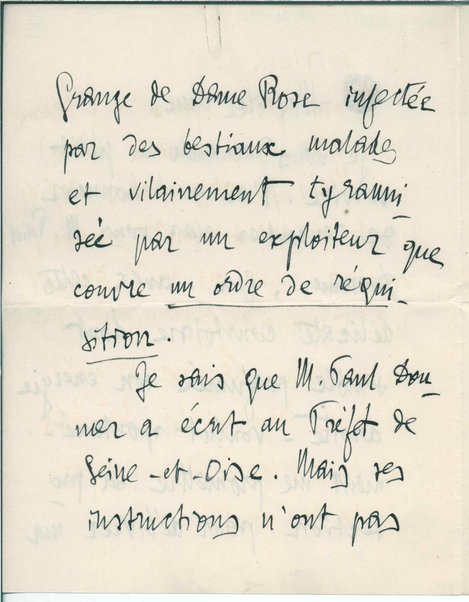 Grange de Dame Rose infectée
par des bestiaux malades
et vilainement tyranni
sée par un exploiteur que
couvre un ordre de réqui-
sition.
Je sais que M. Paul Dou-
mer a écrit au Préfet de
Seine-et-Oise. Mais ses
instructions n'ont pas